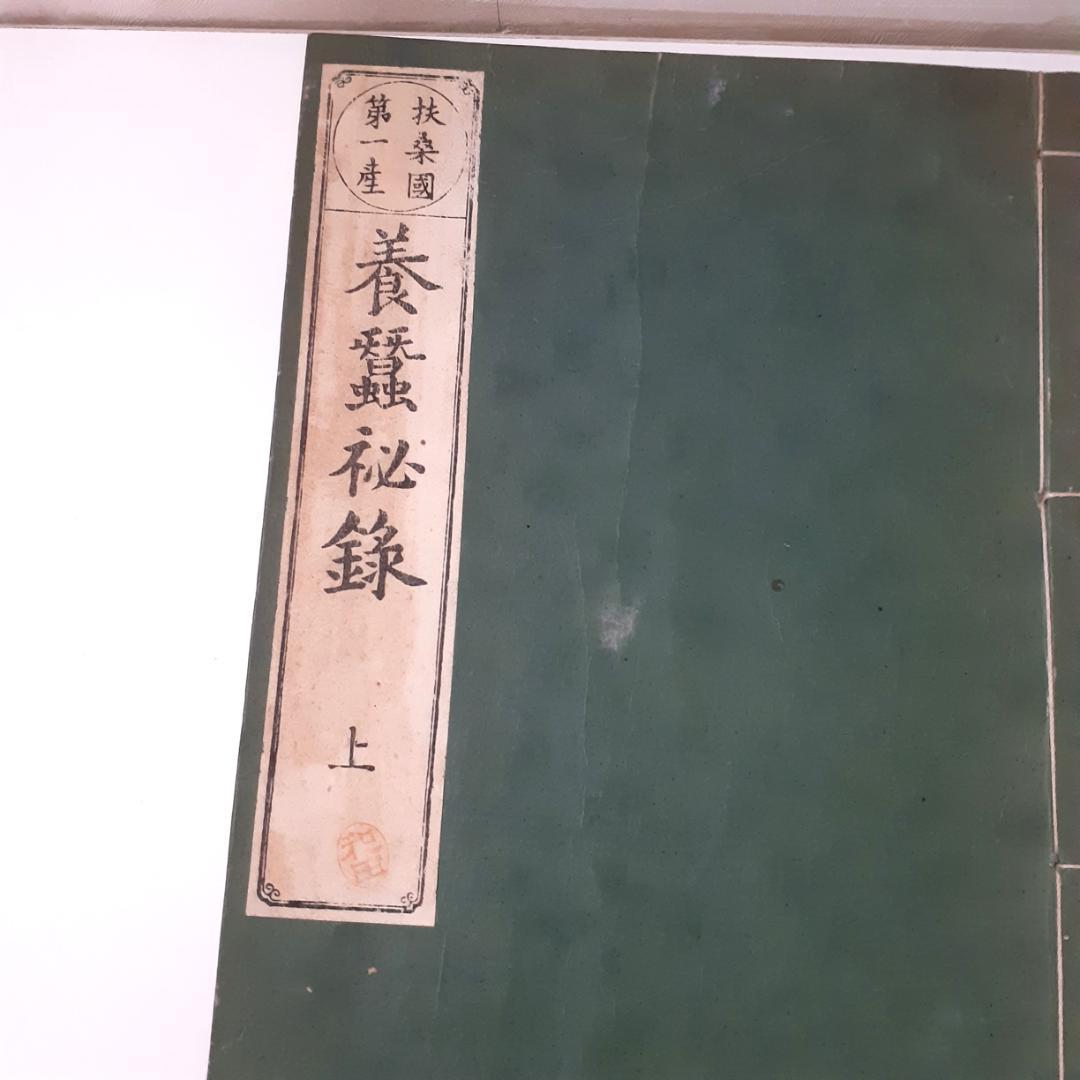 扶桑國
第一産
養蠶祕錄
上